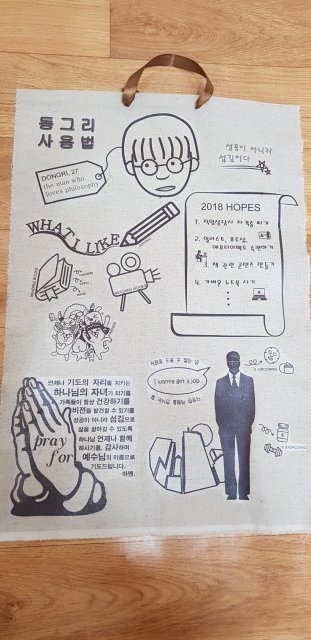 동그리
사용법
DONGRI, 27
the man who
loves philosophy
성공이 아니라
섬김이다
WHAT I LIKE
2018 HOPES
1. 직업상담사 자격증 따기
2. 일러스트, 포토샵,
에프터이펙트 숙련하기
3. 책 관련 콘텐츠 만들기
4. 가벼운 노트북 사기
I wanna get a job
언제나 기도의 자리를 지키는
하나님의 자녀가 되기를
가족들이 항상 건강하기를
비전을 발견할 수 있기를
성공이 아니라 섬김으로
삶을 살아갈 수 있도록
하나님 언제나 함께
하시기를, 감사하며
예수님의 이름으로
기도드립니다.
아멘.
pray
for